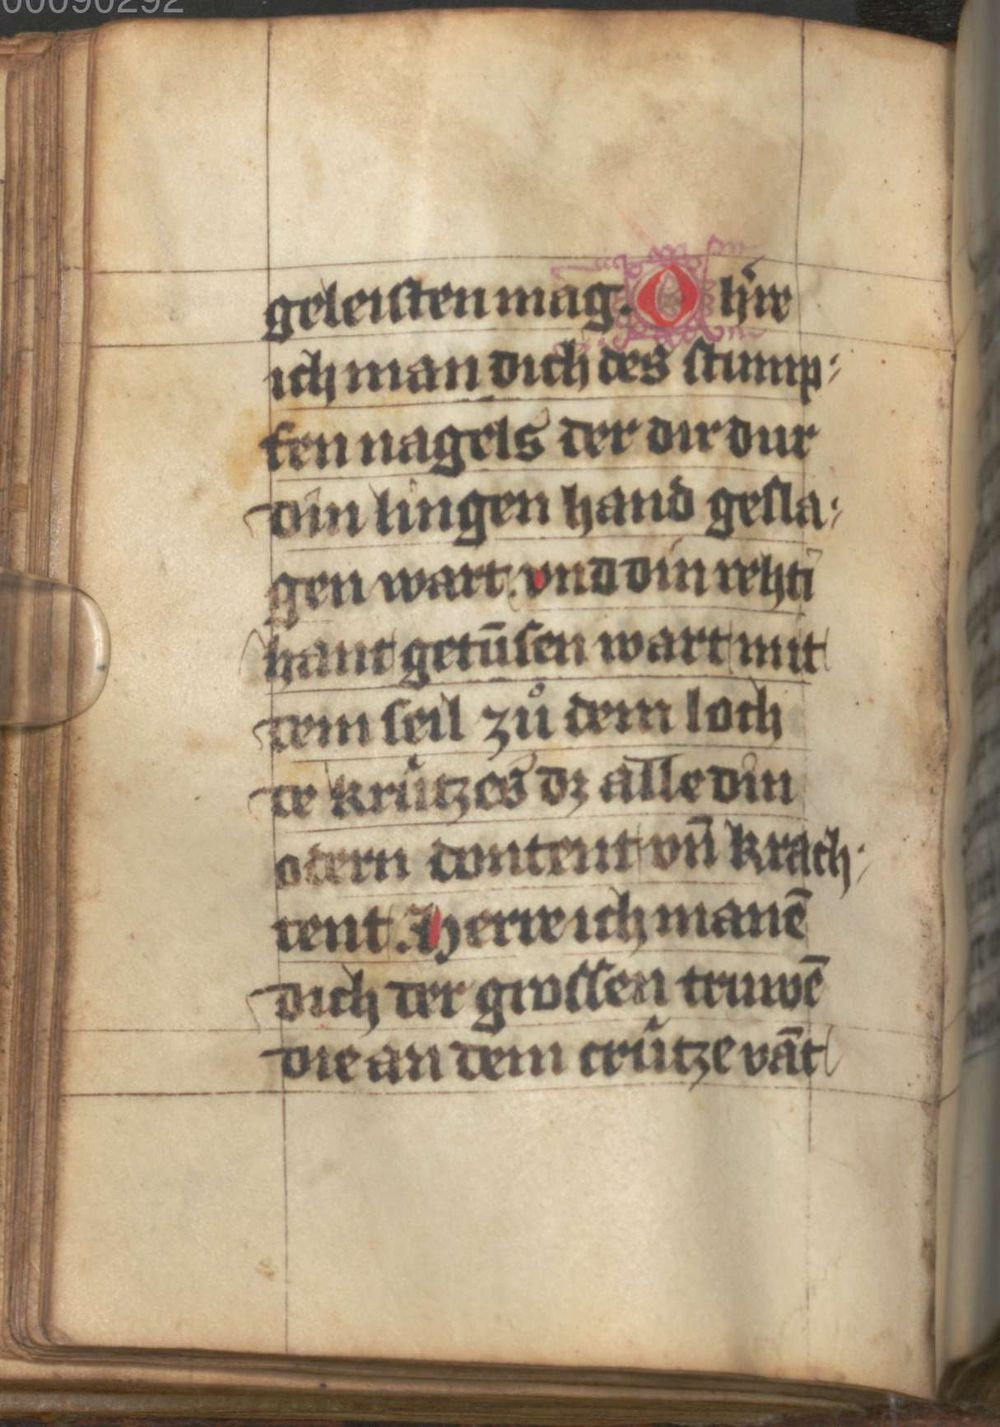 00090292
geleisten mag. O hr̄re
ich man dich des stump⸗
fen nagels der dir dur
din lingen hand gesla⸗
gen wart. vnd din rehti
hant getūsen wart mit
dem seil zů dem loch
de krützes dz alle din
odern dontent vn̄ krach⸗
tent. Herre ich manē
dich der grossen truwē
die an dem crütze vāt